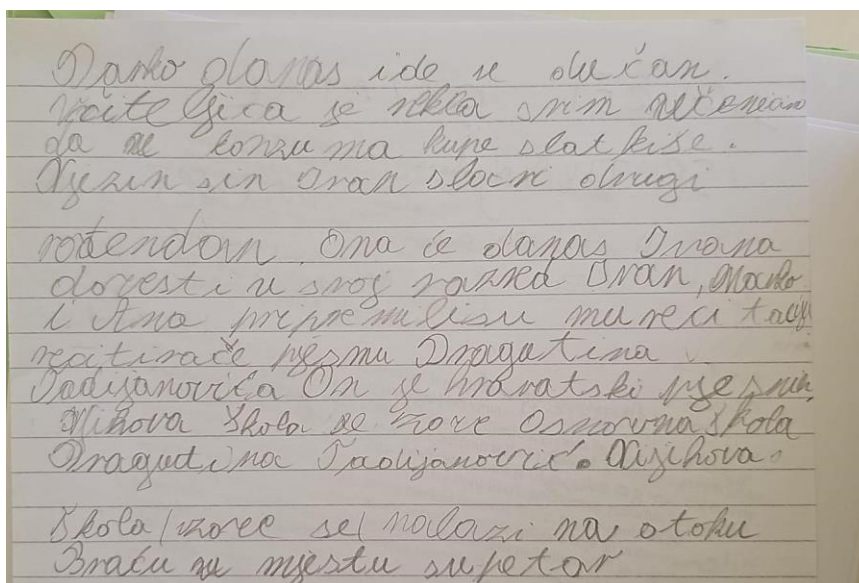 Marko danas ide u dućan.
Učiteljica je rekla svim učenicima
da u konzumu ma kupe slatkiše.
Njezin sin Ivan slavi drugi
rođendan. Ona će danas Ivana
dovesti u svoj razred Ivan, Marko
i Ana pripremili su mu recitaciju
recitiraće pjesmu Dragutina
Tadijanovića On je hrvatski pjesnik.
Njihova škola se zove Osnovna škola
Dragutina Tadijanović. Njihova
škola (zove se) nalazi na otoku
Braču u mjestu supetar